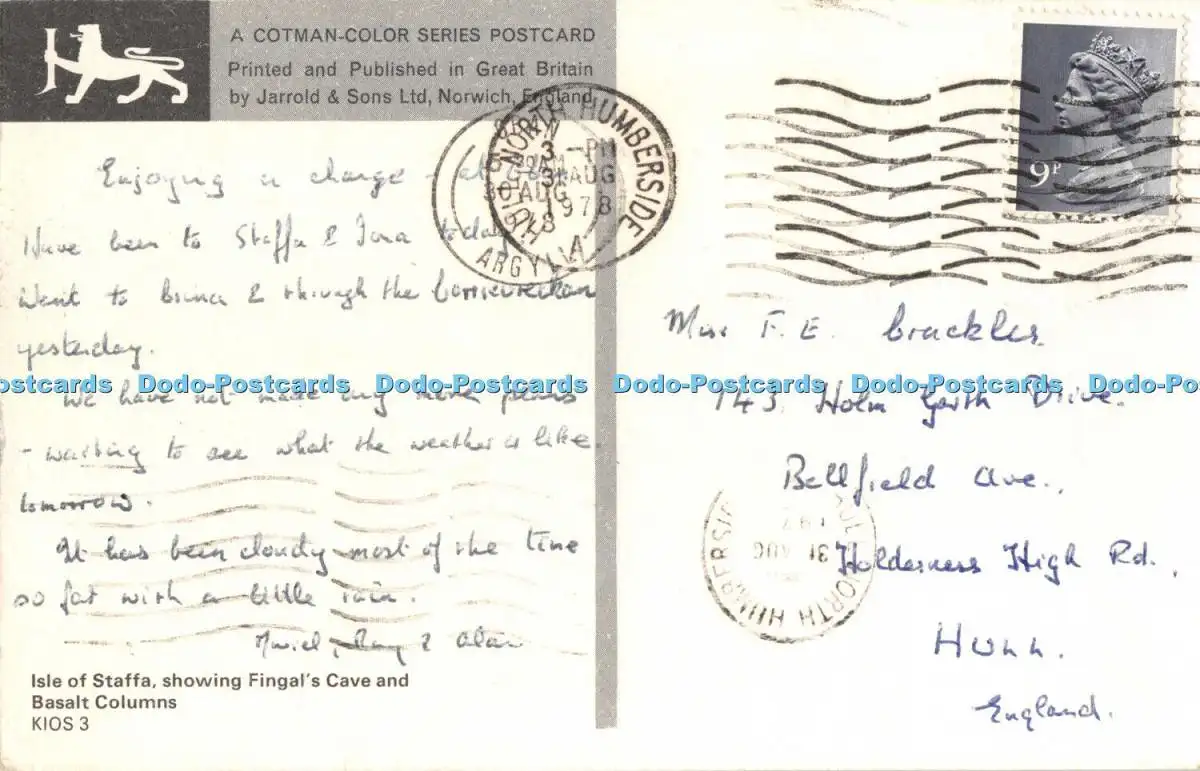 A COTMAN-COLOR SERIES POSTCARD
Printed and Published in Great Britain
by Jarrold & Sons Ltd, Norwich, England
9P
NORTH HUMBERSIDE
3 -PM
31 AUG
1978
A
30 AUG
ARGYLL
Enjoying a change -
Have been to Staffa & Iona today
Went to & through the
yesterday.
We have not made any more plans
- waiting to see what the weather is like
tomorrow.
It has been cloudy most of the time
so far with a little rain.
& Alan
Isle of Staffa, showing Fingal's Cave and
Basalt Columns
KIOS 3
Miss F. E. Crackles.
143 Holm Garth Drive.
Bellfield Ave.,
Holderness High Rd.,
HULL.
England.
31 AUG
NORTH HUMBERSIDE
Dodo-Postcards Dodo-Postcards Dodo-Postcards Dodo-Postcards